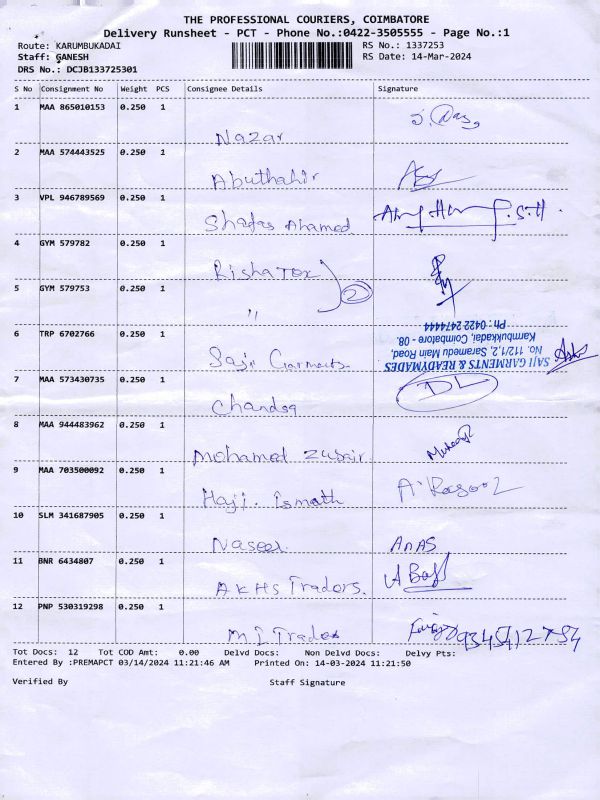 THE PROFESSIONAL COURIERS, COIMBATORE
Delivery Runsheet - PCT - Phone No.:0422-3505555 - Page No.:1
Route: KARUMBUKADAI RS No.: 1337253
Staff: GANESH RS Date: 14-Mar-2024
DRS No.: DCJB133725301
S No Consignment No Weight PCS Consignee Details Signature
1 MAA 865010153 0.250 1
Nazar
2 MAA 574443525 0.250 1
Abuthahir
3 VPL 946789569 0.250 1
Ahamed
4 GYM 579782 0.250 1
Risha Tex
5 GYM 579753 0.250 1
" 2
6 TRP 6702766 0.250 1
Saji Garments
SAJI GARMENTS & READYMADES
No. 112/1,2, Saramedu Main Road,
Karmbukadai, Coimbatore - 08.
Ph : 0422 2474444
7 MAA 573430735 0.250 1
DL
8 MAA 944483962 0.250 1
Mohamed Zubair
9 MAA 703500092 0.250 1
Haji. Ismath
10 SLM 341687905 0.250 1
Naseer ANAS
11 BNR 6434807 0.250 1
A K H S Traders.
12 PNP 530319298 0.250 1
M I
Tot Docs: 12 Tot COD Amt: 0.00 Delvd Docs: Non Delvd Docs: Delvy Pts:
Entered By :PREMAPCT 03/14/2024 11:21:46 AM Printed On: 14-03-2024 11:21:50
Verified By Staff Signature